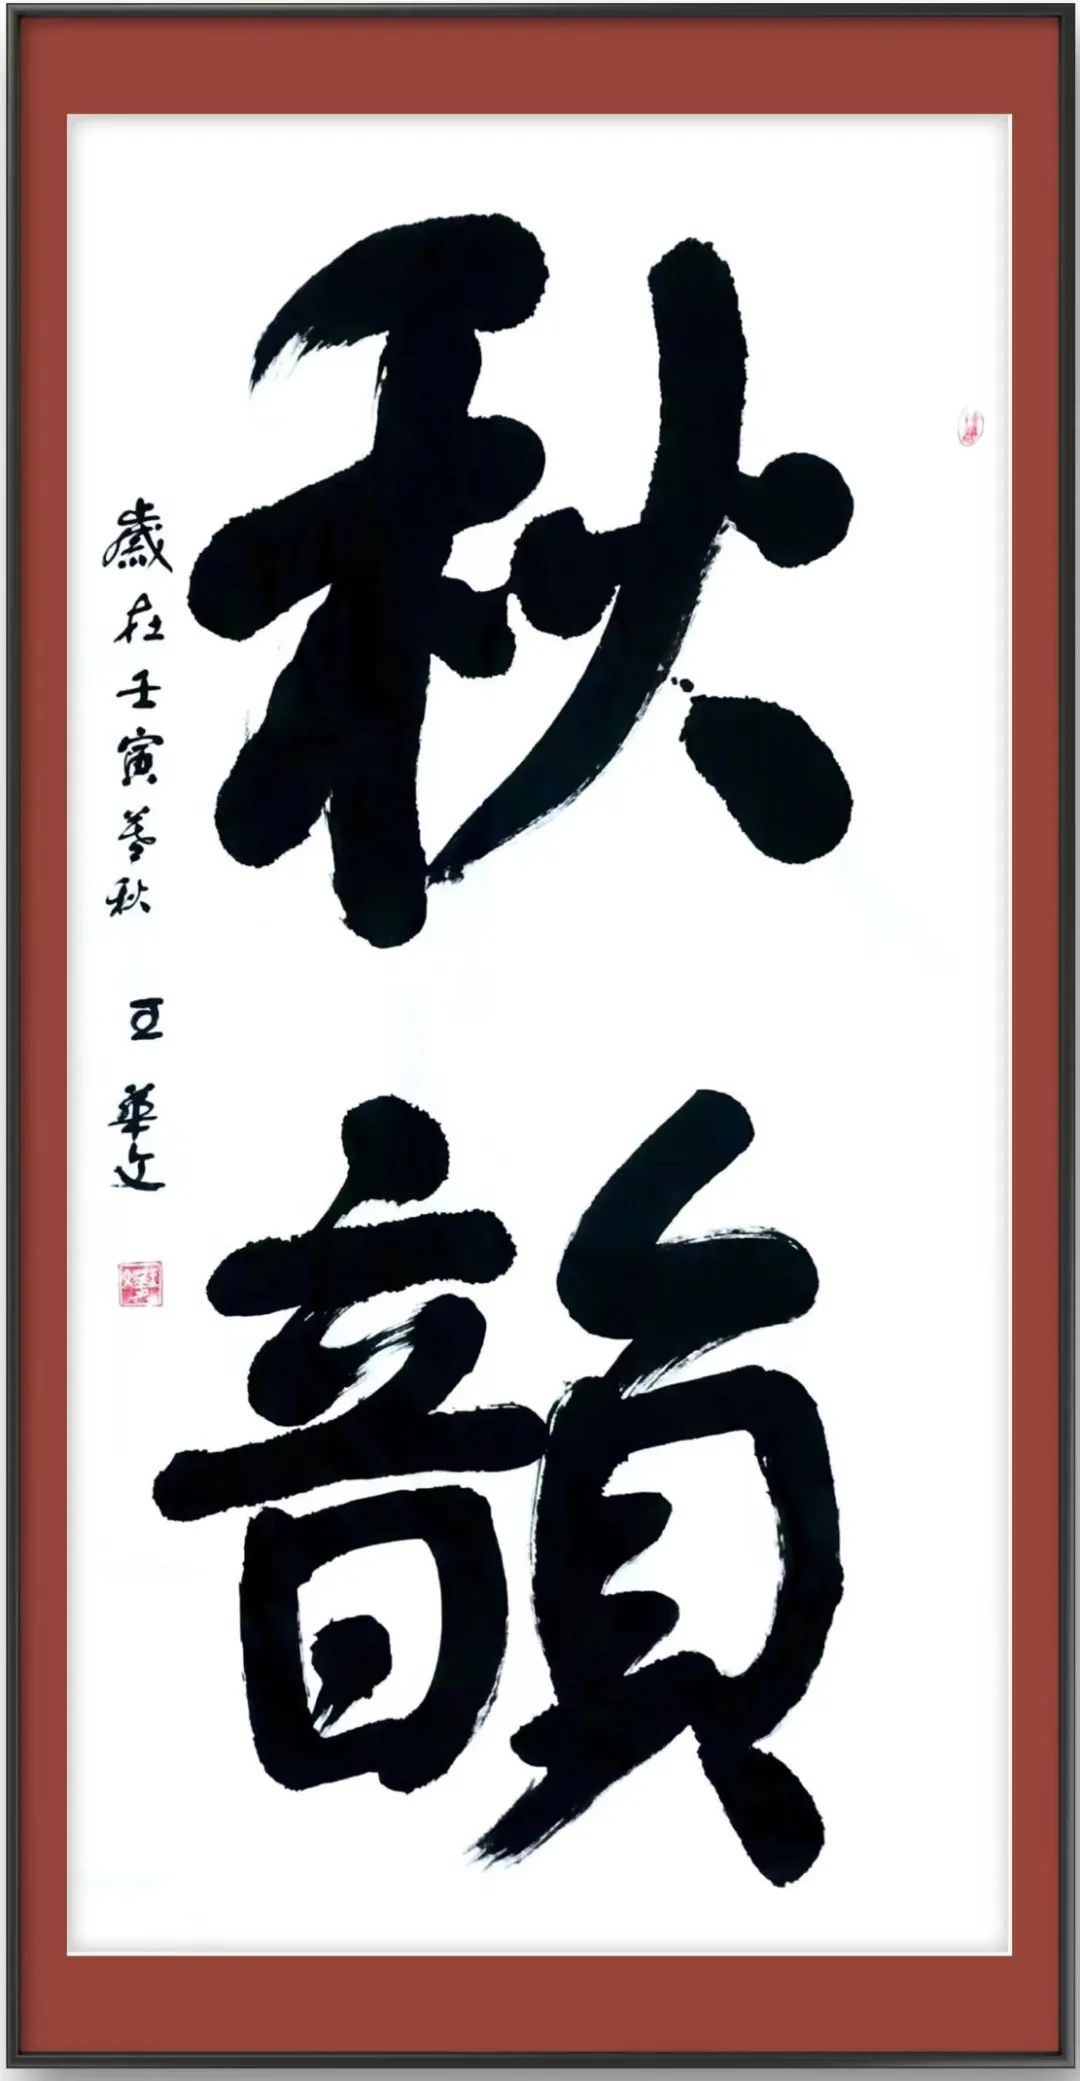 秋韻
歲在壬寅暮秋 王華文